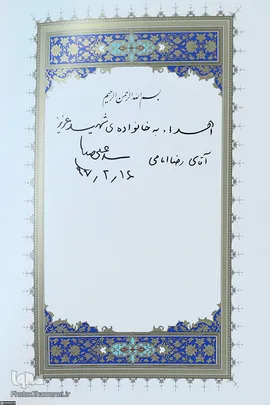 بسم الله الرحمن الرحیم
اهداء به خانواده‌ی شهید عزیز
آقای رضا امامی
سید علی خامنه‌ای
۹۷٫۲٫۱۶
PhotosKhamenei.ir